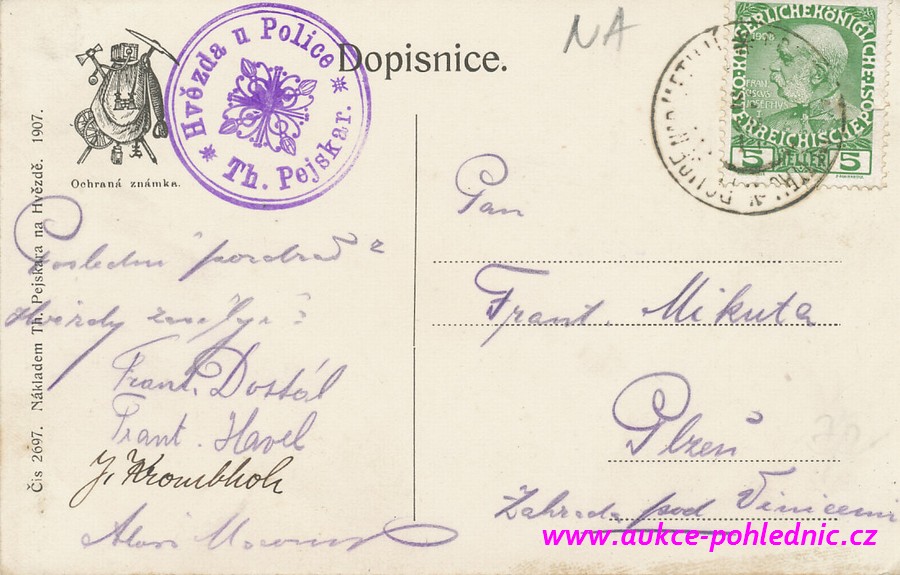 NA
Dopisnice.
* Hvězda u Police *
Th. Pejskar.
Ochraná známka.
Čís 2697. Nákladem Th. Pejskara na Hvězdě. 1907.
KAISERLICHE KÖNIGLICHE
ÖSTERREICHISCHE POST
1908
5 HELLER 5
Poslední pozdrav z
Hvězdy
Frant. Dostál
Frant. Havel
J. Krombholz
Alois
Pan
Frant. Mikuta
Plzeň
Zahrada pod Vinicemi
www.aukce-pohlednic.cz